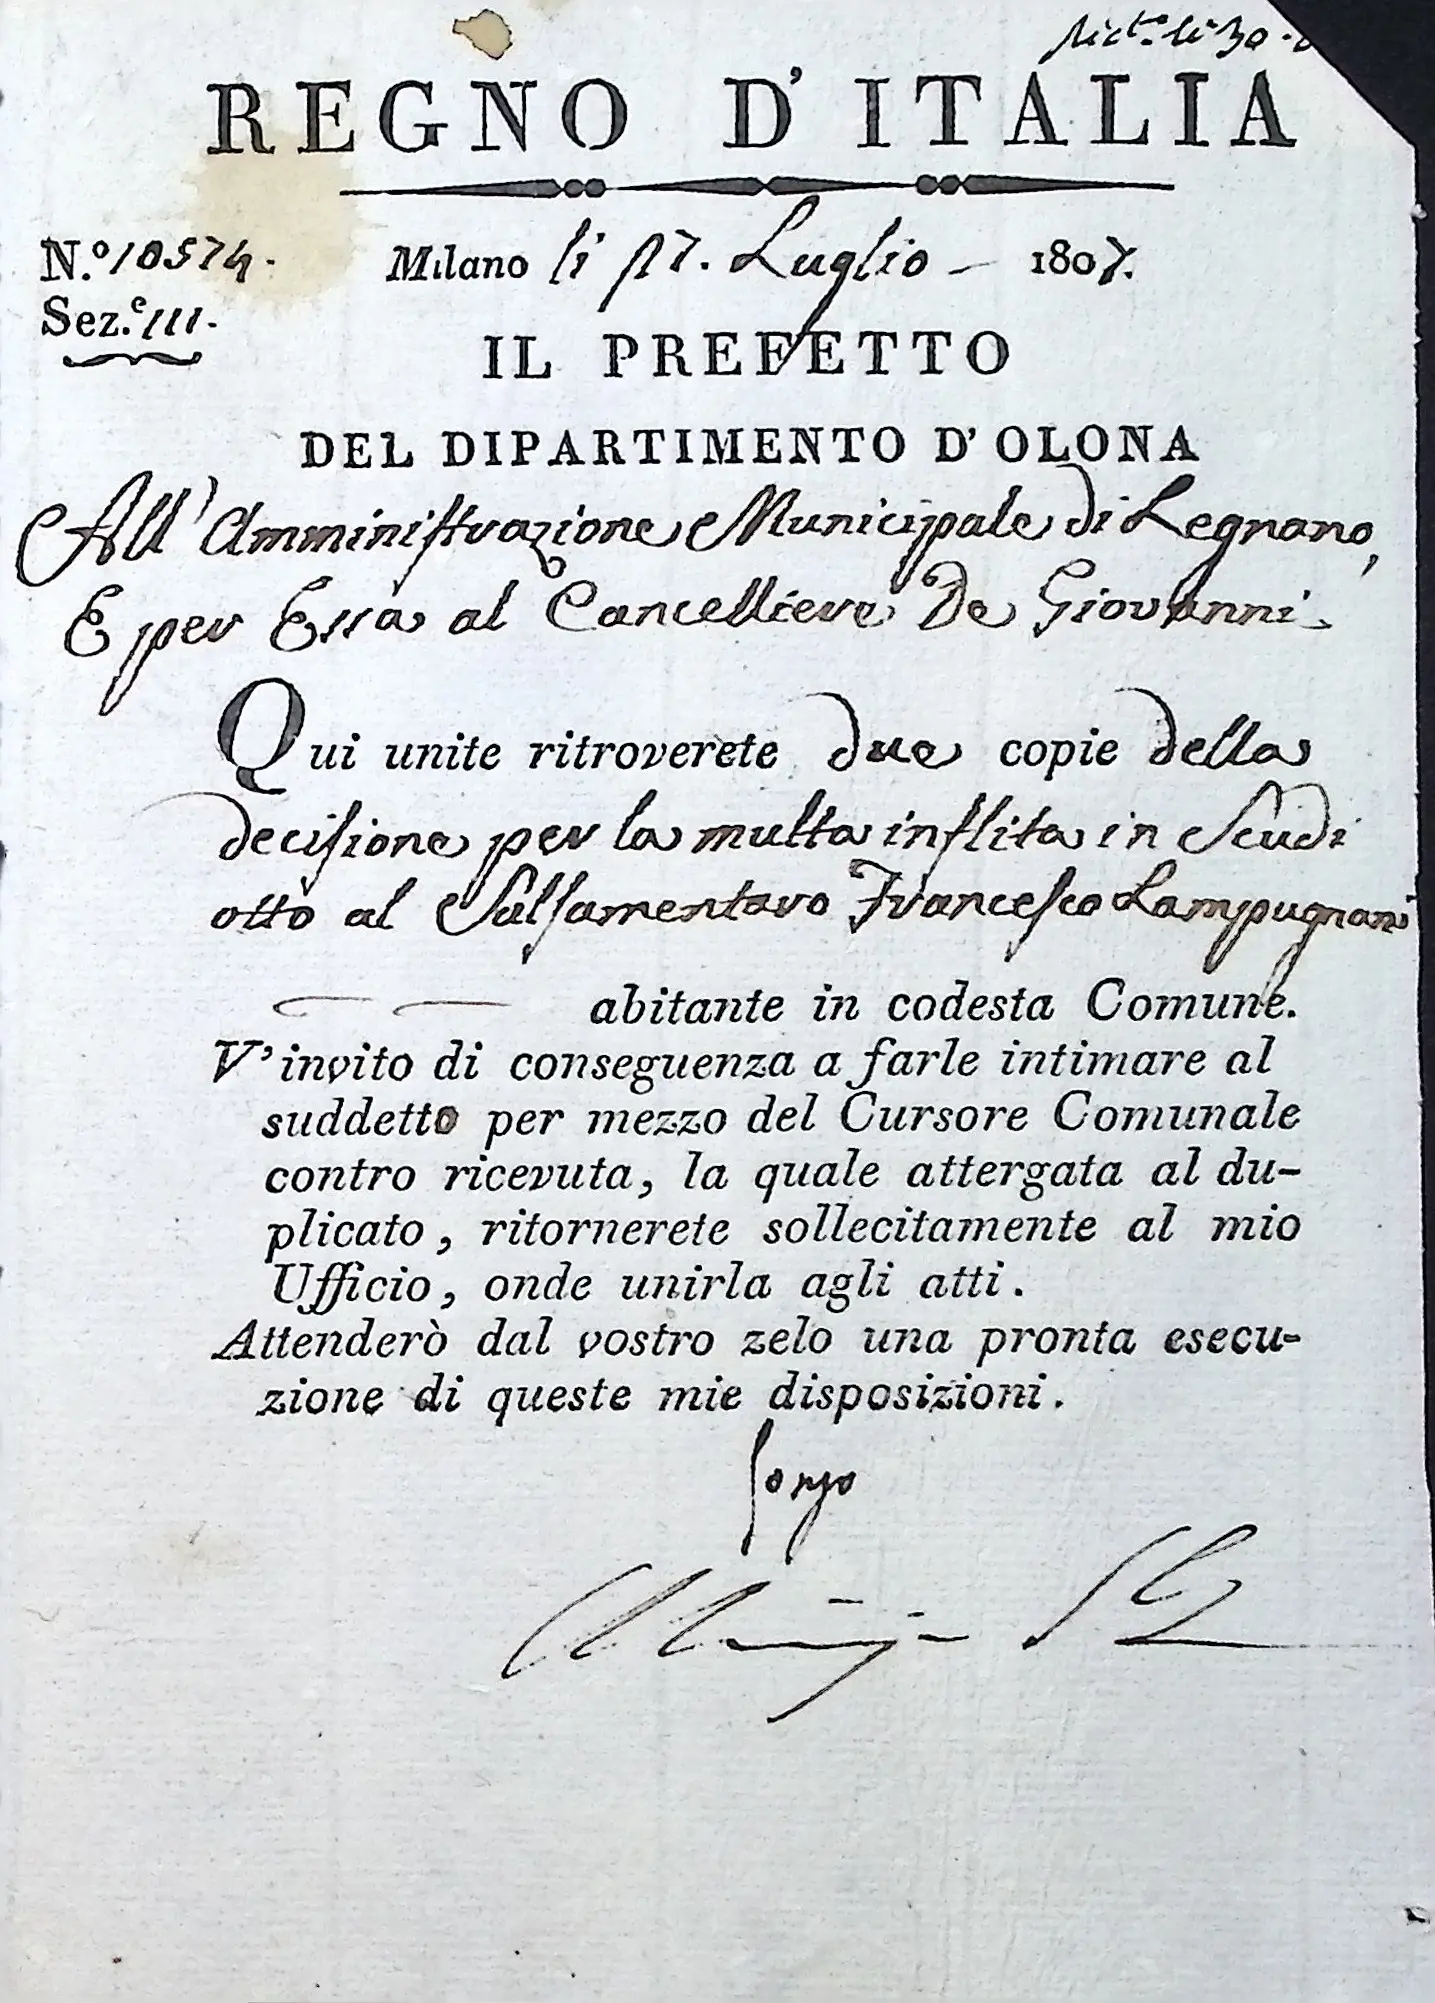 li 30
REGNO D'ITALIA
N.º 10574.
Milano li 17. Luglio 1807.
Sez.e III.
IL PREFETTO
DEL DIPARTIMENTO D'OLONA
All'Amministrazione Municipale di Legnano,
E per Essa al Cancelliere De Giovanni
Qui unite ritroverete due copie della
decisione per la multa inflita in Scudi
otto al Salsamentaro Francesco Lampugnani
abitante in codesta Comune.
V'invito di conseguenza a farle intimare al
suddetto per mezzo del Cursore Comunale
contro ricevuta, la quale attergata al du-
plicato, ritornerete sollecitamente al mio
Ufficio, onde unirla agli atti.
Attenderò dal vostro zelo una pronta esecu-
zione di queste mie disposizioni.